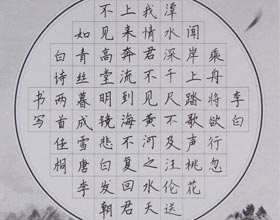 李白
乘舟将欲行忽
闻岸上踏歌声桃花
潭水深千尺不及汪伦送
我情君不见黄河之水天
上来奔流到海不复回君
不见高堂明镜悲白发朝
如青丝暮成雪唐李
白诗两首任桐
书写